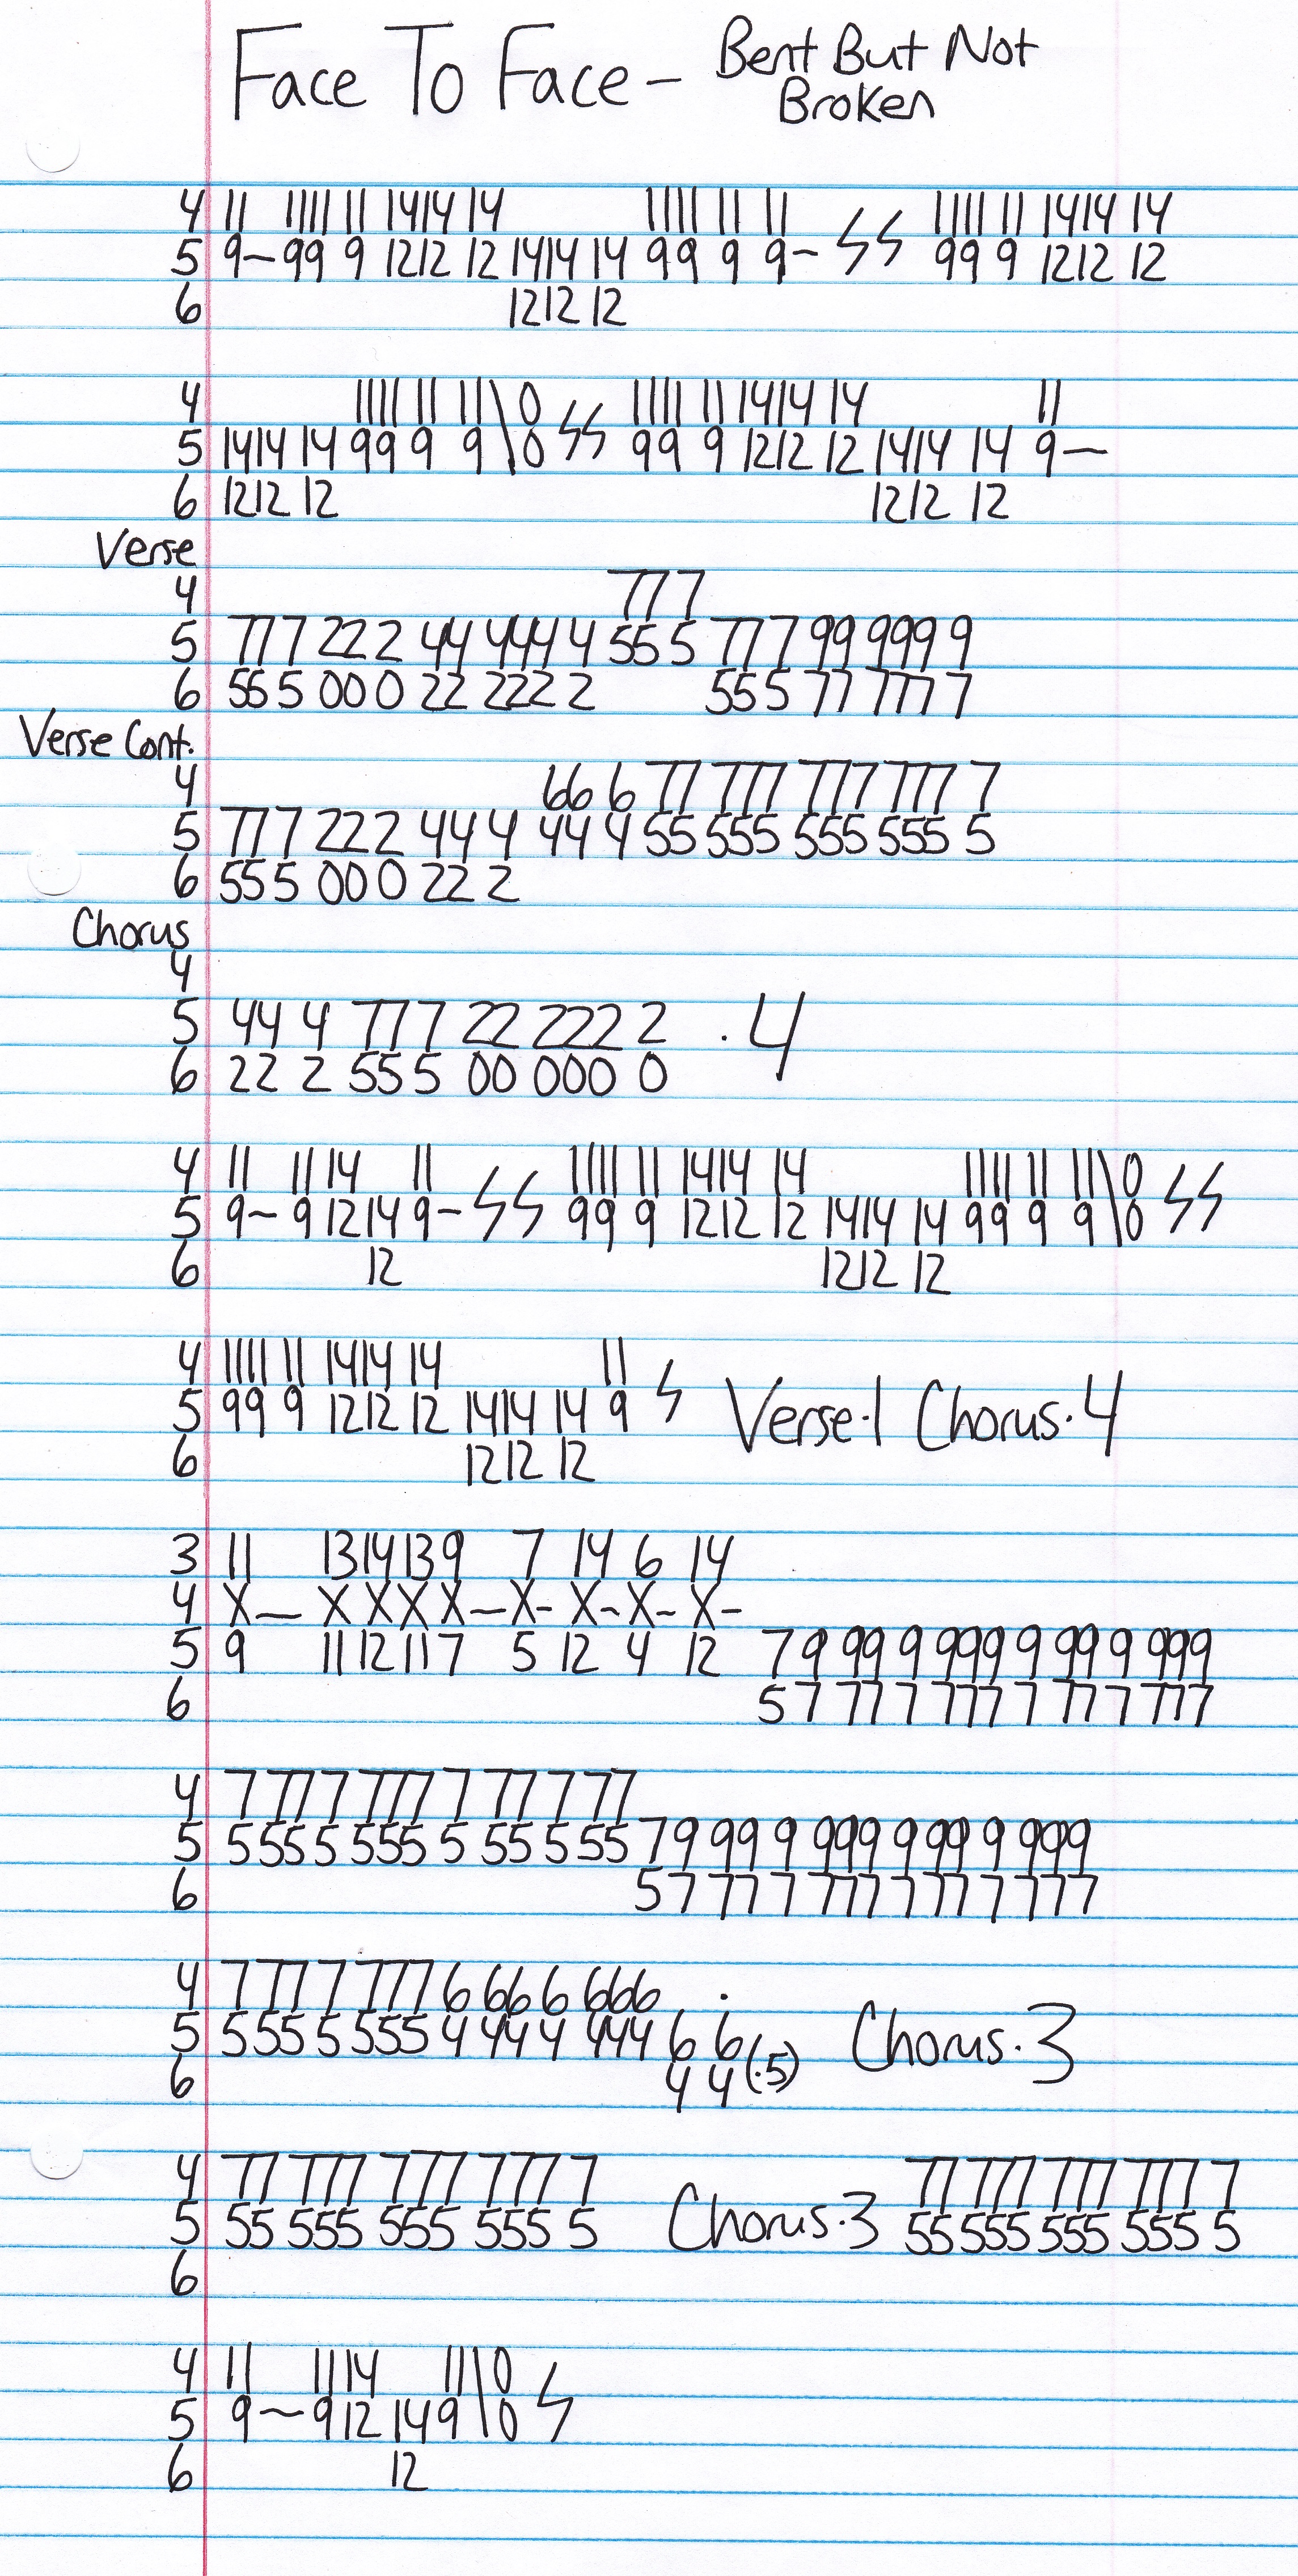 Face To Face - Bent But Not
Broken
4 11 1111 11 1414 14 1111 11 11 1111 11 1414 14
5 9- 99 9 1212 12 1414 14 99 9 9- 99 9 1212 12
6 1212 12
4 1111 11 11\0 1111 11 1414 14 11
5 1414 14 99 9 9\0 99 9 1212 12 1414 14 9-
6 1212 12 1212 12
Verse
4 77 7
5 77 7 22 2 44 444 4 55 5 77 7 99 999 9
6 55 5 00 0 22 222 2 55 5 77 777 7
Verse Cont.
4 66 6 77 777 777 777 7
5 77 7 22 2 44 4 44 4 55 555 555 555 5
6 55 5 00 0 22 2
Chorus
4
5 44 4 77 7 22 222 2 .4
6 22 2 55 5 00 000 0
4 11 11 14 11 1111 11 1414 14 1111 11 11\0
5 9- 9 12 14 9- 99 9 1212 12 1414 14 99 9 9\0
6 12 1212 12
4 1111 11 1414 14 11
5 99 9 1212 12 1414 14 9 Verse·1 Chorus·4
6 1212 12
3 11 13 14 13 9 7 14 6 14
4 X- X X X X-X- X-X- X-
5 9 11 12 11 7 5 12 4 12 7 9 99 9 999 9 99 9 999
6 5 7 77 7 777 7 77 7 777
4 7 77 7 777 7 77 7 77
5 5 55 5 555 5 55 5 55 7 9 99 9 999 9 99 9 999
6 5 7 77 7 777 7 77 7 777
4 7 77 7 777 6 66 6 666 .
5 5 55 5 555 4 44 4 444 6 6 Chorus·3
6 4 4(.5)
4 77 777 777 777 7 77 777 777 777 7
5 55 555 555 555 5 Chorus·3 55 555 555 555 5
6
4 11 11 14 11\0
5 9- 9 12 14 9\0
6 12